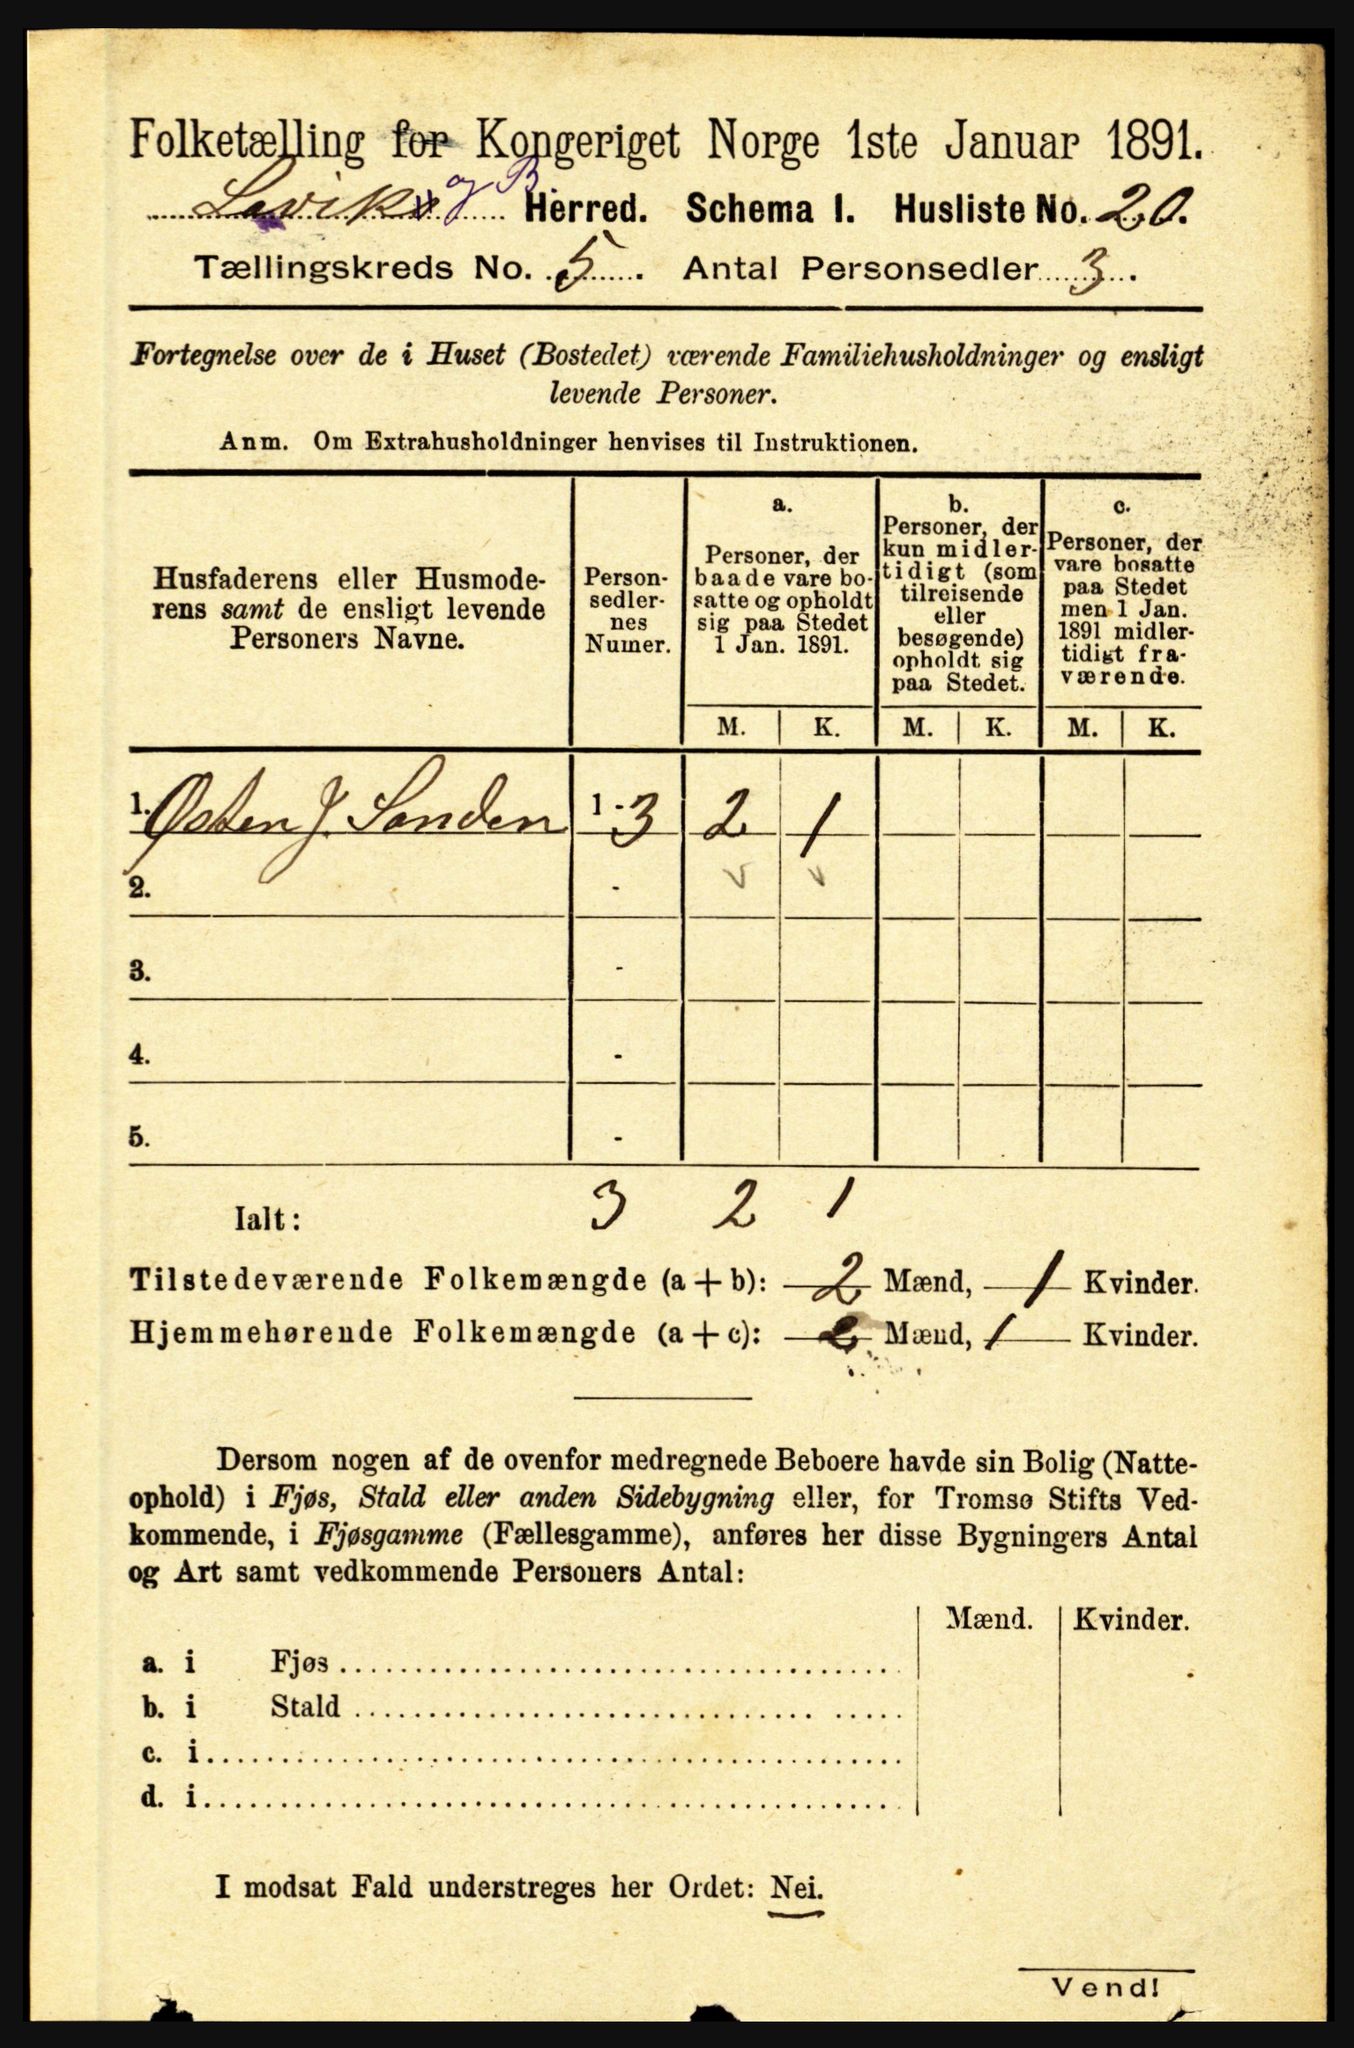 Folketælling for Kongeriget Norge 1ste Januar 1891.
Laviks og B. Herred. Schema I. Husliste No. 20.
Tællingskreds No. 5. Antal Personsedler 3.
Fortegnelse over de i Huset (Bostedet) værende Familiehusholdninger og ensligt
levende Personer.
Anm. Om Extrahusholdninger henvises til Instruktionen.
Husfaderens eller Husmode-
rens samt de ensligt levende
Personers Navne.
Person-
sedler-
nes
Numer.
a.
Personer, der
baade vare bo-
satte og opholdt
sig paa Stedet
1 Jan. 1891.
b.
Personer, der
kun midler-
tidigt (som
tilreisende
eller
besøgende)
opholdt sig
paa Stedet.
c.
Personer, der
vare bosatte
paa Stedet
men 1 Jan.
1891 midler-
tidigt fra-
værende.
M. K. M. K. M. K.
1. Østen J. Sanden 1 - 3 2 1
2. -
3. -
4. -
5. -
Ialt: 3 2 1
Tilstedeværende Folkemængde (a + b): 2 Mænd, 1 Kvinder.
Hjemmehørende Folkemængde (a + c): 2 Mænd, 1 Kvinder.
Dersom nogen af de ovenfor medregnede Beboere havde sin Bolig (Natte-
ophold) i Fjøs, Stald eller anden Sidebygning eller, for Tromsø Stifts Ved-
kommende, i Fjøsgamme (Fællesgamme), anføres her disse Bygningers Antal
og Art samt vedkommende Personers Antal:
Mænd. Kvinder.
a. i Fjøs
b. i Stald
c. i
d. i
I modsat Fald understreges her Ordet: Nei.
Vend!